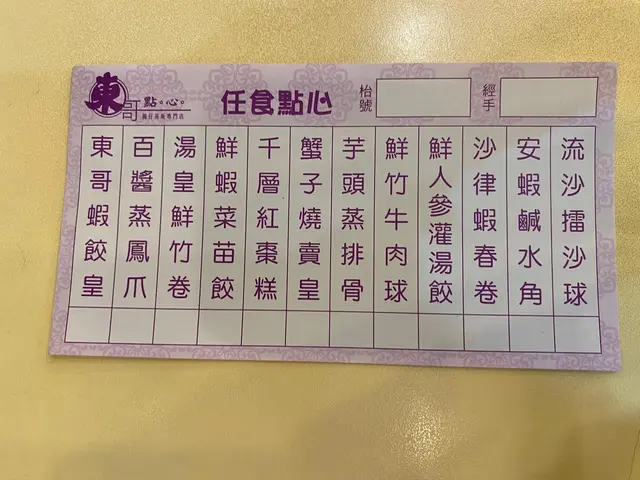 東哥點。心。
任食點心
枱號
經手
東哥蝦餃皇
百醬蒸鳳爪
湯皇鮮竹卷
鮮蝦菜苗餃
千層紅棗糕
蟹子燒賣皇
芋頭蒸排骨
鮮竹牛肉球
鮮人參灌湯餃
沙律蝦春卷
安蝦鹹水角
流沙擂沙球